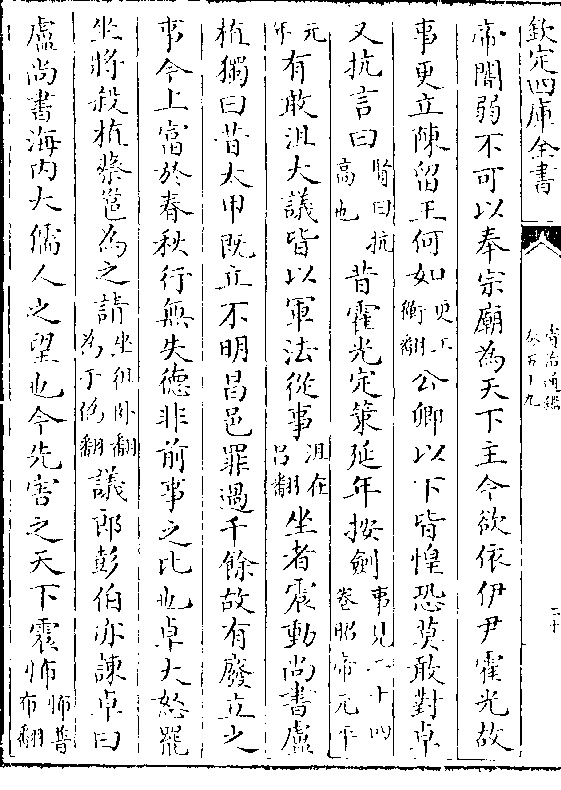 欽定四庫全書
資治通鑑
卷五十九
二十
帝闇弱不可以奉宗廟為天下主今欲依伊尹霍光故
事更立陳留王何如更工衡翻公卿以下皆惶恐莫敢對卓
又抗言曰賢曰抗高也昔霍光定策延年按劍事見二十四卷昭帝元平
元年有敢沮大議皆以軍法從事沮在呂翻坐者震動尚書盧
植獨曰昔太甲既立不明昌邑罪過千餘故有廢立之
事今上富於春秋行無失德非前事之比也卓大怒罷
坐將殺植蔡邕為之請坐徂卧翻為于偽翻議郎彭伯亦諫卓曰
盧尚書海内大儒人之望也今先害之天下震怖怖普布翻